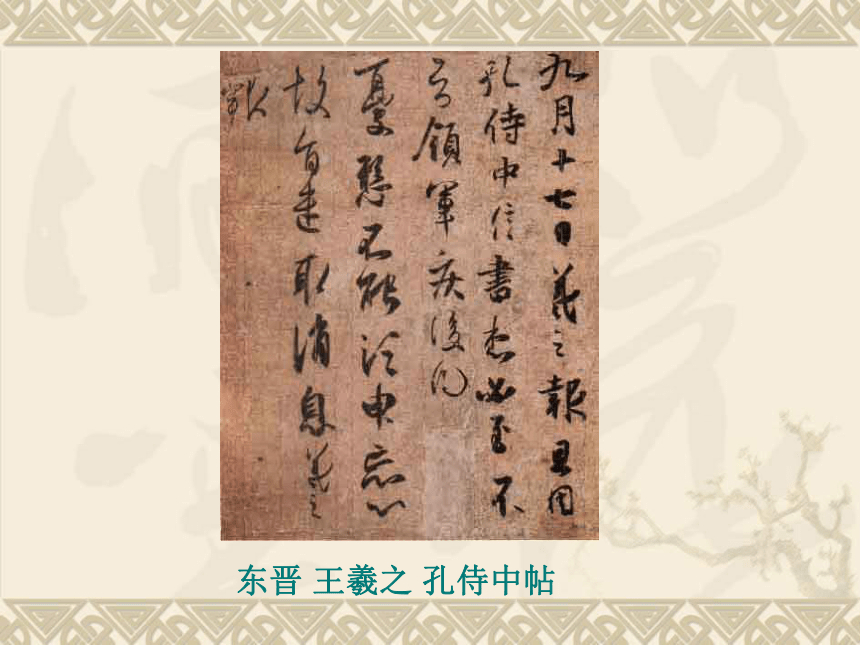 九月十七日羲之報且因
孔侍中信書想必至不
知領軍疾後問
憂懸不能須臾忘心
故旨遣取消息羲之
報
东晋 王羲之 孔侍中帖